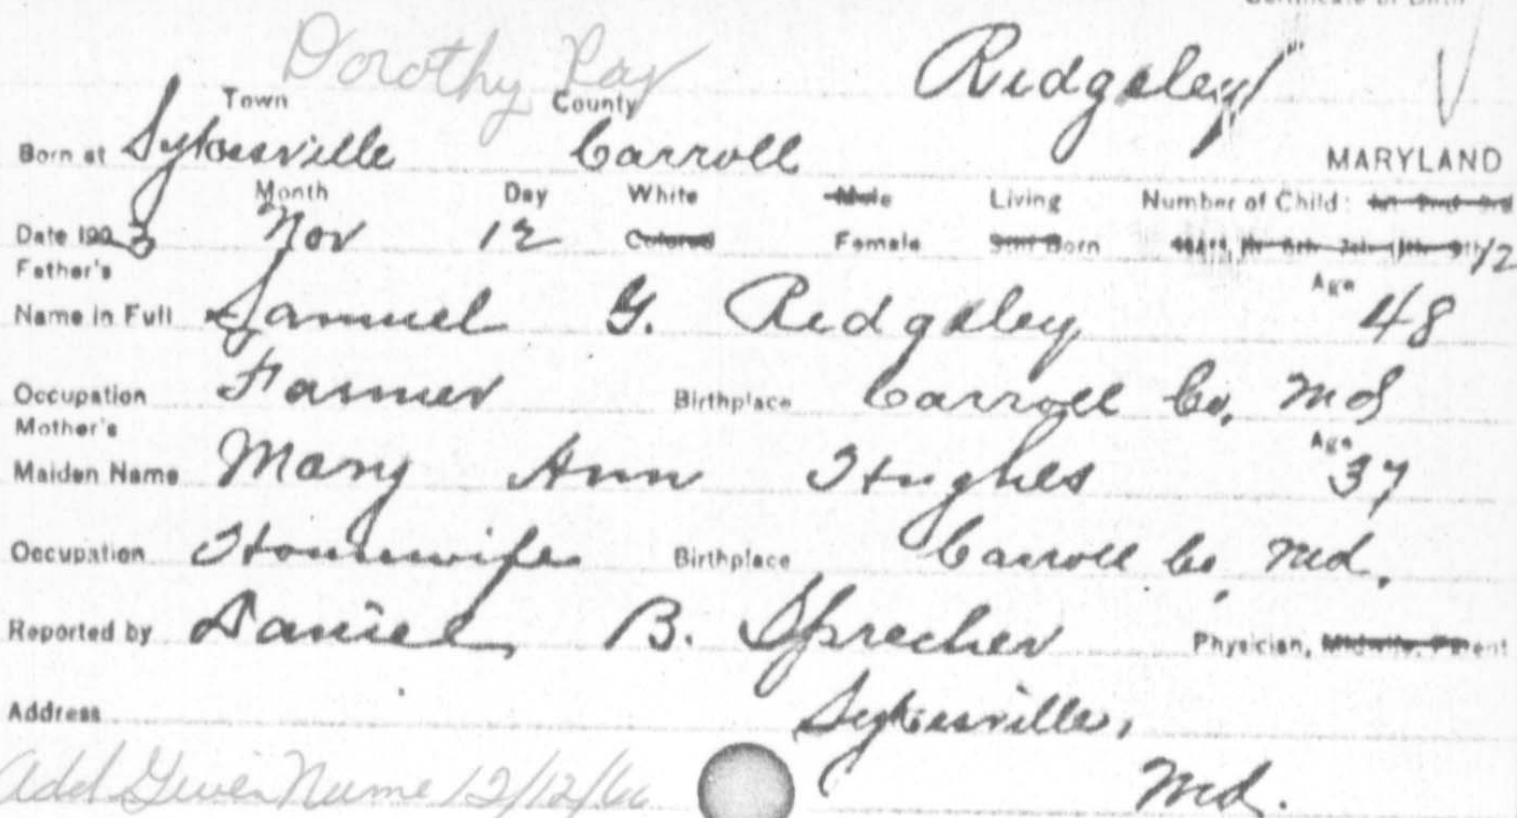 Dorothy Ray Ridgeley
Town County
Born at Sykesville Carroll MARYLAND
Month Day White Male Living Number of Child: 1st 2nd 3rd
Date 1903 Nov 12 Colored Female Still Born 12
Father's Age
Name in Full Samuel G. Ridgeley 48
Occupation Farmer Birthplace Carroll Co, Md
Mother's Age
Maiden Name Mary Ann Hughes 37
Occupation Housewife Birthplace Carroll Co, Md.
Reported by Daniel B. Sprecher Physician, Midwife, Parent
Address Sykesville,
Add Given Name 12/12/66 Md.